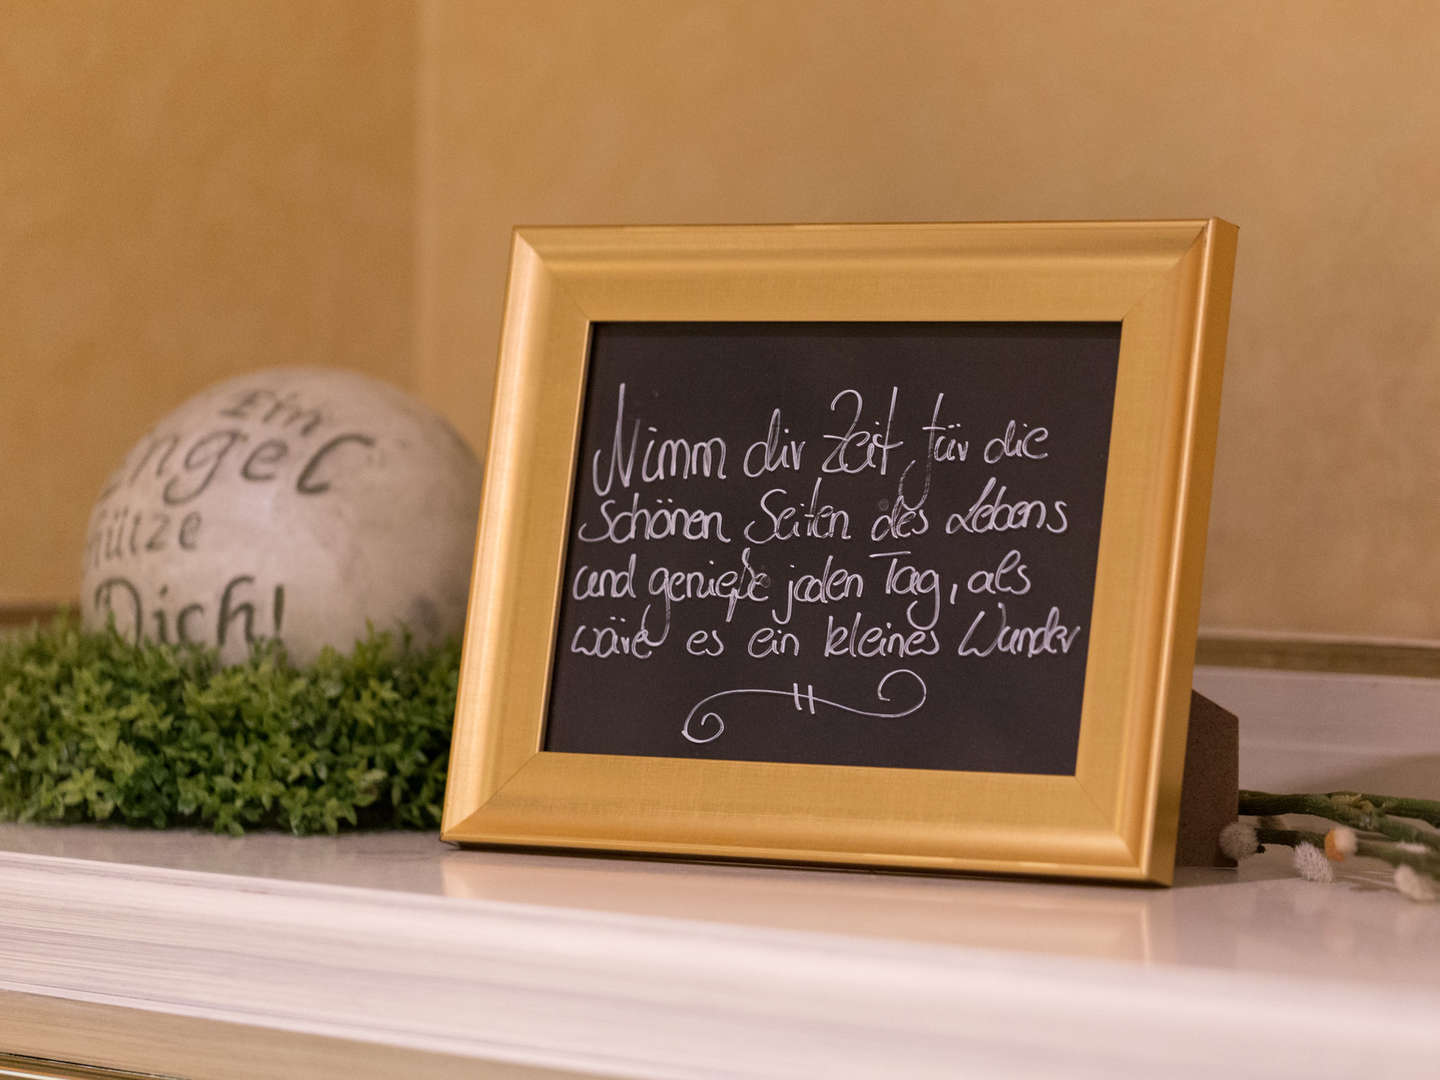 Ein
Engel
schütze
Dich!
Nimm dir Zeit für die
schönen Seiten des Lebens
und genieße jeden Tag, als
wäre es ein kleines Wunder